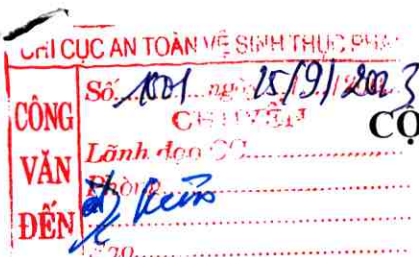 CHI CỤC AN TOÀN VỆ SINH THỰC PHẨM
CÔNG VĂN ĐẾN
Số 1801 ngày 15/9/2023
CHUYỂN
CỘ
Lãnh đạo CC
Phòng